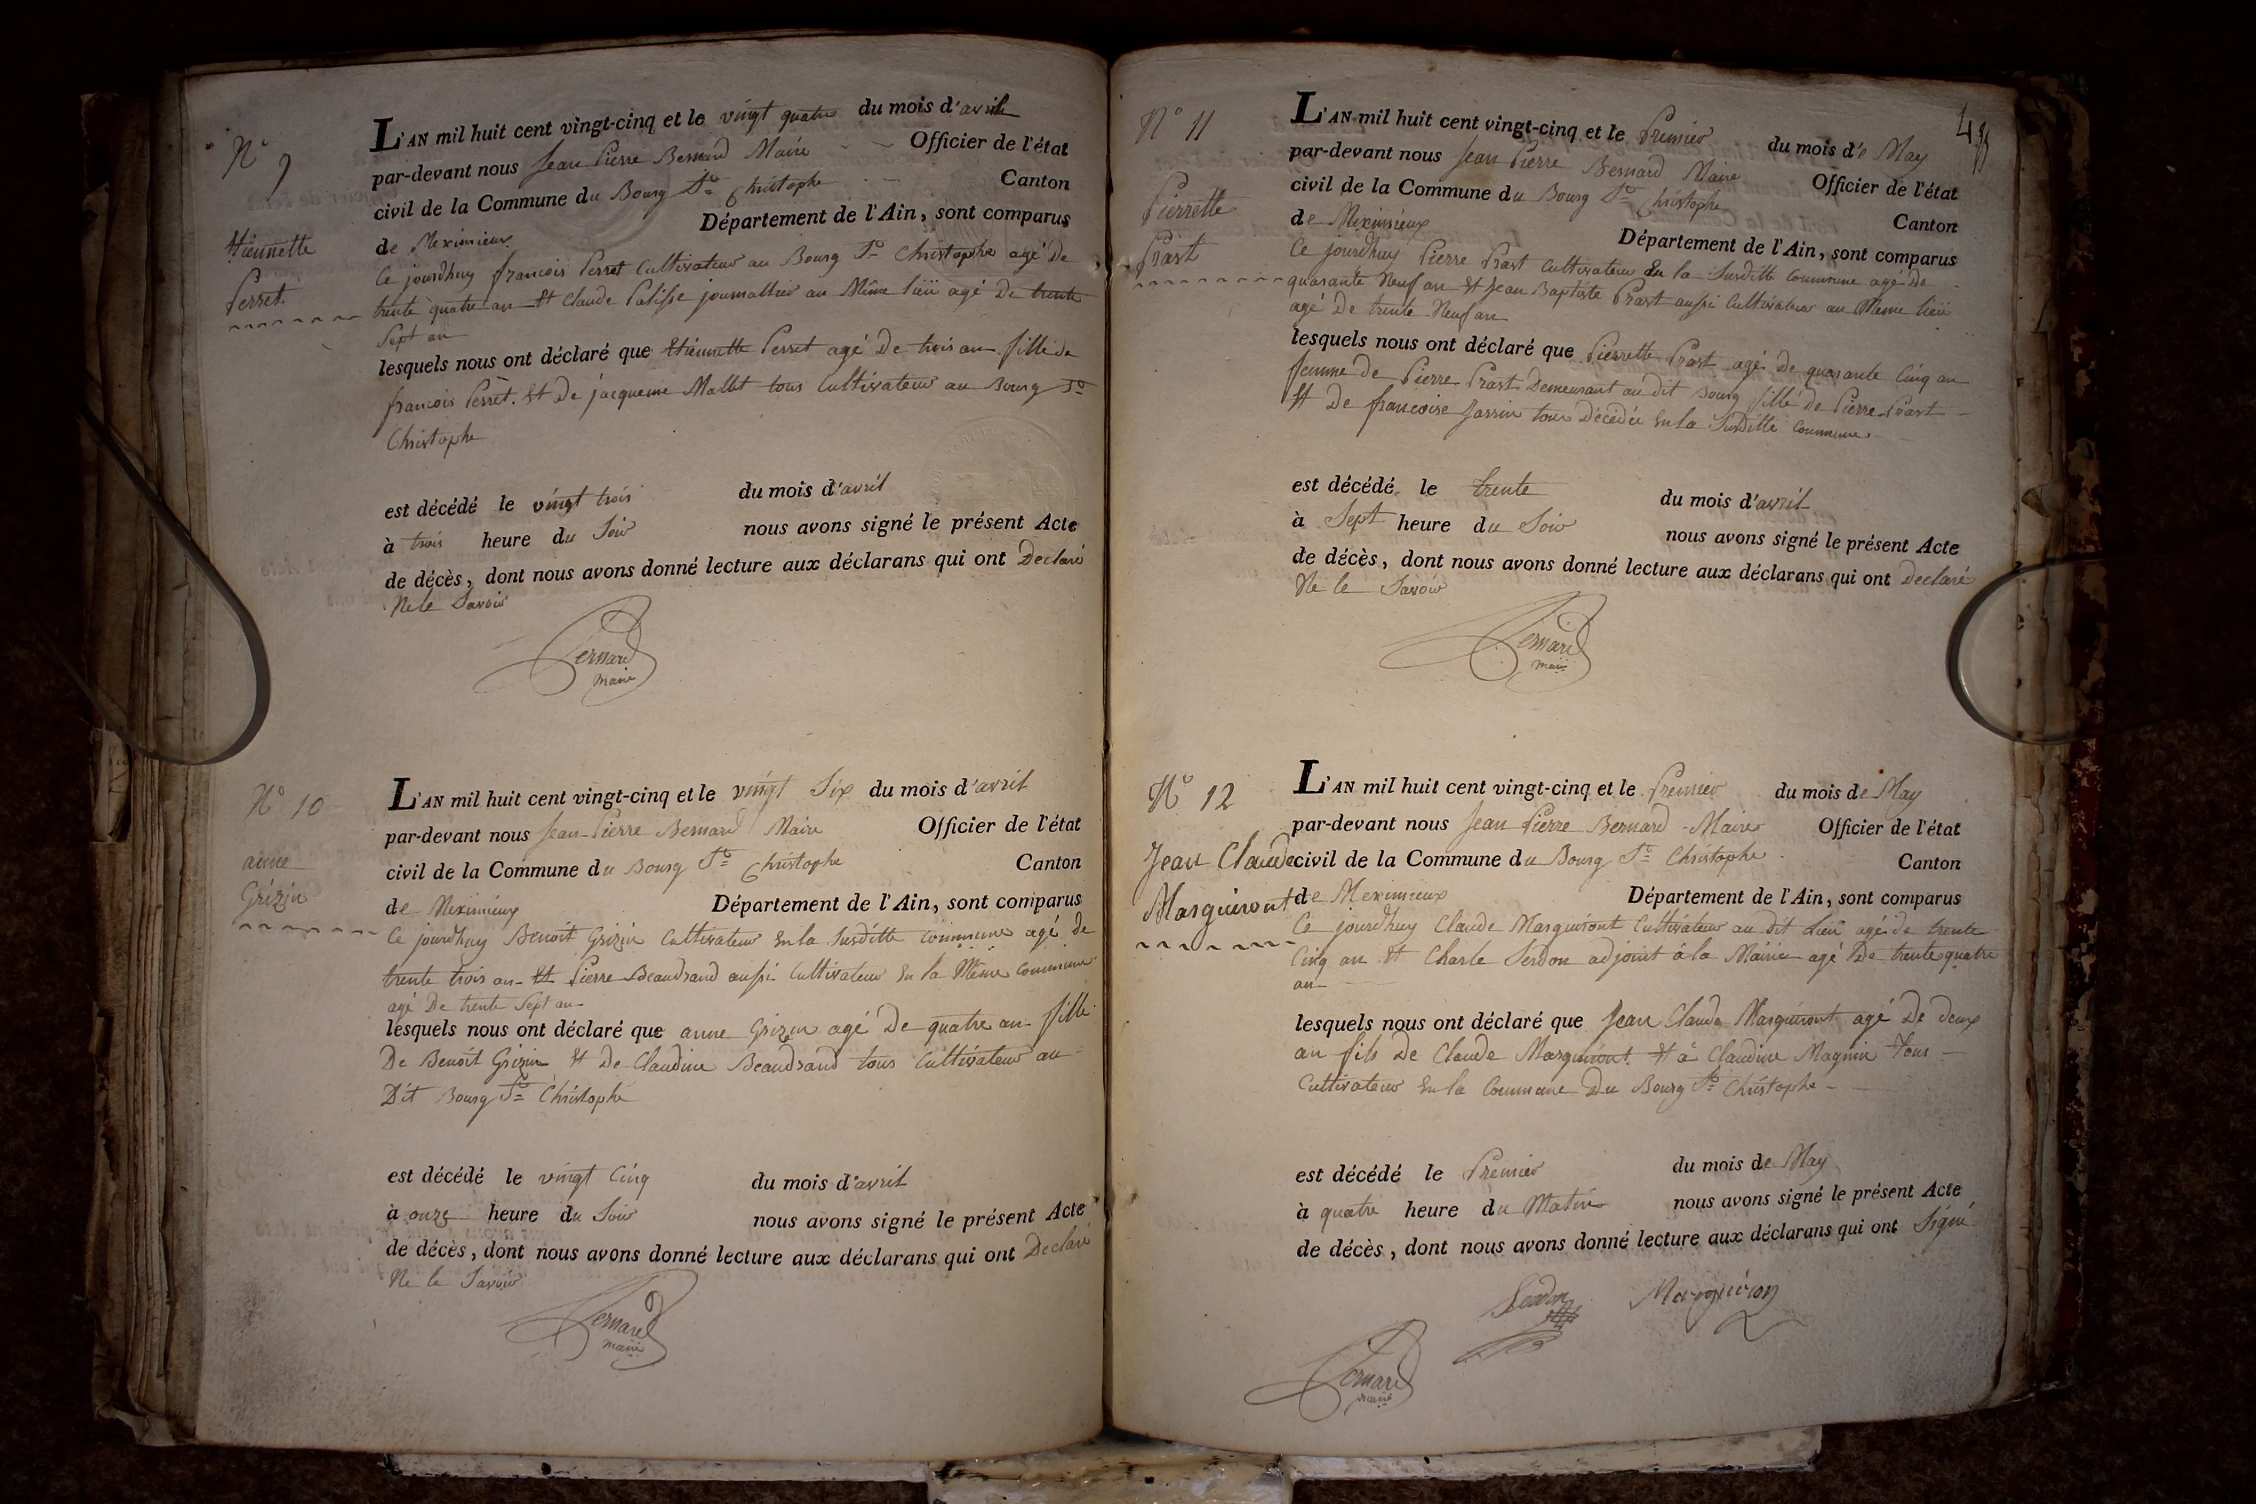 N° 9
Etiennette
Perret
L'AN mil huit cent vingt-cinq et le vingt quatre du mois d'avril
par-devant nous Jean Pierre Bernard Maire Officier de l'état
civil de la Commune du Bourg St Christophe Canton
de Meximieux Département de l'Ain, sont comparus
Ce jourdhuy francois Perret Cultivateur au Bourg St Christophe agé De
trente quatre an Et Claude Palisse journallier au Même lieu agé De trente
Sept an
lesquels nous ont déclaré que Etiennette Perret agé De trois an fille de
francois Perret Et De jacqueme Mallet tous Cultivateur au Bourg St
Christophe
est décédé le vingt trois du mois d'avril
à trois heure du Soir nous avons signé le présent Acte
de décès, dont nous avons donné lecture aux déclarans qui ont Declaré
Ne le Savoir
Bernard
maire
N° 10
anne
Grizin
L'AN mil huit cent vingt-cinq et le vingt Six du mois d'avril
par-devant nous Jean Pierre Bernard Maire Officier de l'état
civil de la Commune du Bourg St Christophe Canton
de Meximieux Département de l'Ain, sont comparus
Ce jourdhuy Benoit Grizin Cultivateur En la Susditte commune agé de
trente trois an Et Pierre Beaudrand aussi Cultivateur En la Même Commune
agé De trente Sept an
lesquels nous ont déclaré que anne Grizin agé De quatre an fille
De Benoit Grizin Et De Claudine Beaudrand tous Cultivateur au
Dit Bourg St Christophe
est décédé le vingt Cinq du mois d'avril
à onze heure du Soir nous avons signé le présent Acte
de décès, dont nous avons donné lecture aux déclarans qui ont Declaré
Ne le Savoir
Bernard
maire
N° 11
Pierrette
Prast
L'AN mil huit cent vingt-cinq et le Premier du mois de May
par-devant nous Jean Pierre Bernard Maire Officier de l'état
civil de la Commune du Bourg St Christophe Canton
de Meximieux Département de l'Ain, sont comparus
Ce jourdhuy Pierre Prast Cultivateur En la Susditte Commune agé De
quarante Neuf an Et Jean Baptiste Prast aussi Cultivateur au Meme lieu
agé De trente Neuf an
lesquels nous ont déclaré que Pierrette Prast agé De quarante Cinq an
femme De Pierre Prast Demeurant au dit Bourg fille de Pierre Prast
Et De francoise Jassin tous Décédée En la Susditte Commune
est décédé le trente du mois d'avril
à Sept heure du Soir nous avons signé le présent Acte
de décès, dont nous avons donné lecture aux déclarans qui ont Declaré
Ne le Savoir
Bernard
maire
N° 12
Jean Claude
Marguiront
L'AN mil huit cent vingt-cinq et le Premier du mois de May
par-devant nous Jean Pierre Bernard Maire Officier de l'état
civil de la Commune du Bourg St Christophe Canton
de Meximieux Département de l'Ain, sont comparus
Ce jourdhuy Claude Marguiront Cultivateur au Dit Lieu agé de trente
Cinq an Et Charle Serdon adjoint à la Mairie agé De trente quatre
an
lesquels nous ont déclaré que Jean Claude Marguiront agé De deux
an fils De Claude Marguiront Et à Claudine Magnin tous
Cultivateur En la Commune Du Bourg St Christophe
est décédé le Premier du mois de May
à quatre heure du Matin nous avons signé le présent Acte
de décès, dont nous avons donné lecture aux déclarans qui ont Signé
Serdon Marguiron
Bernard
maire